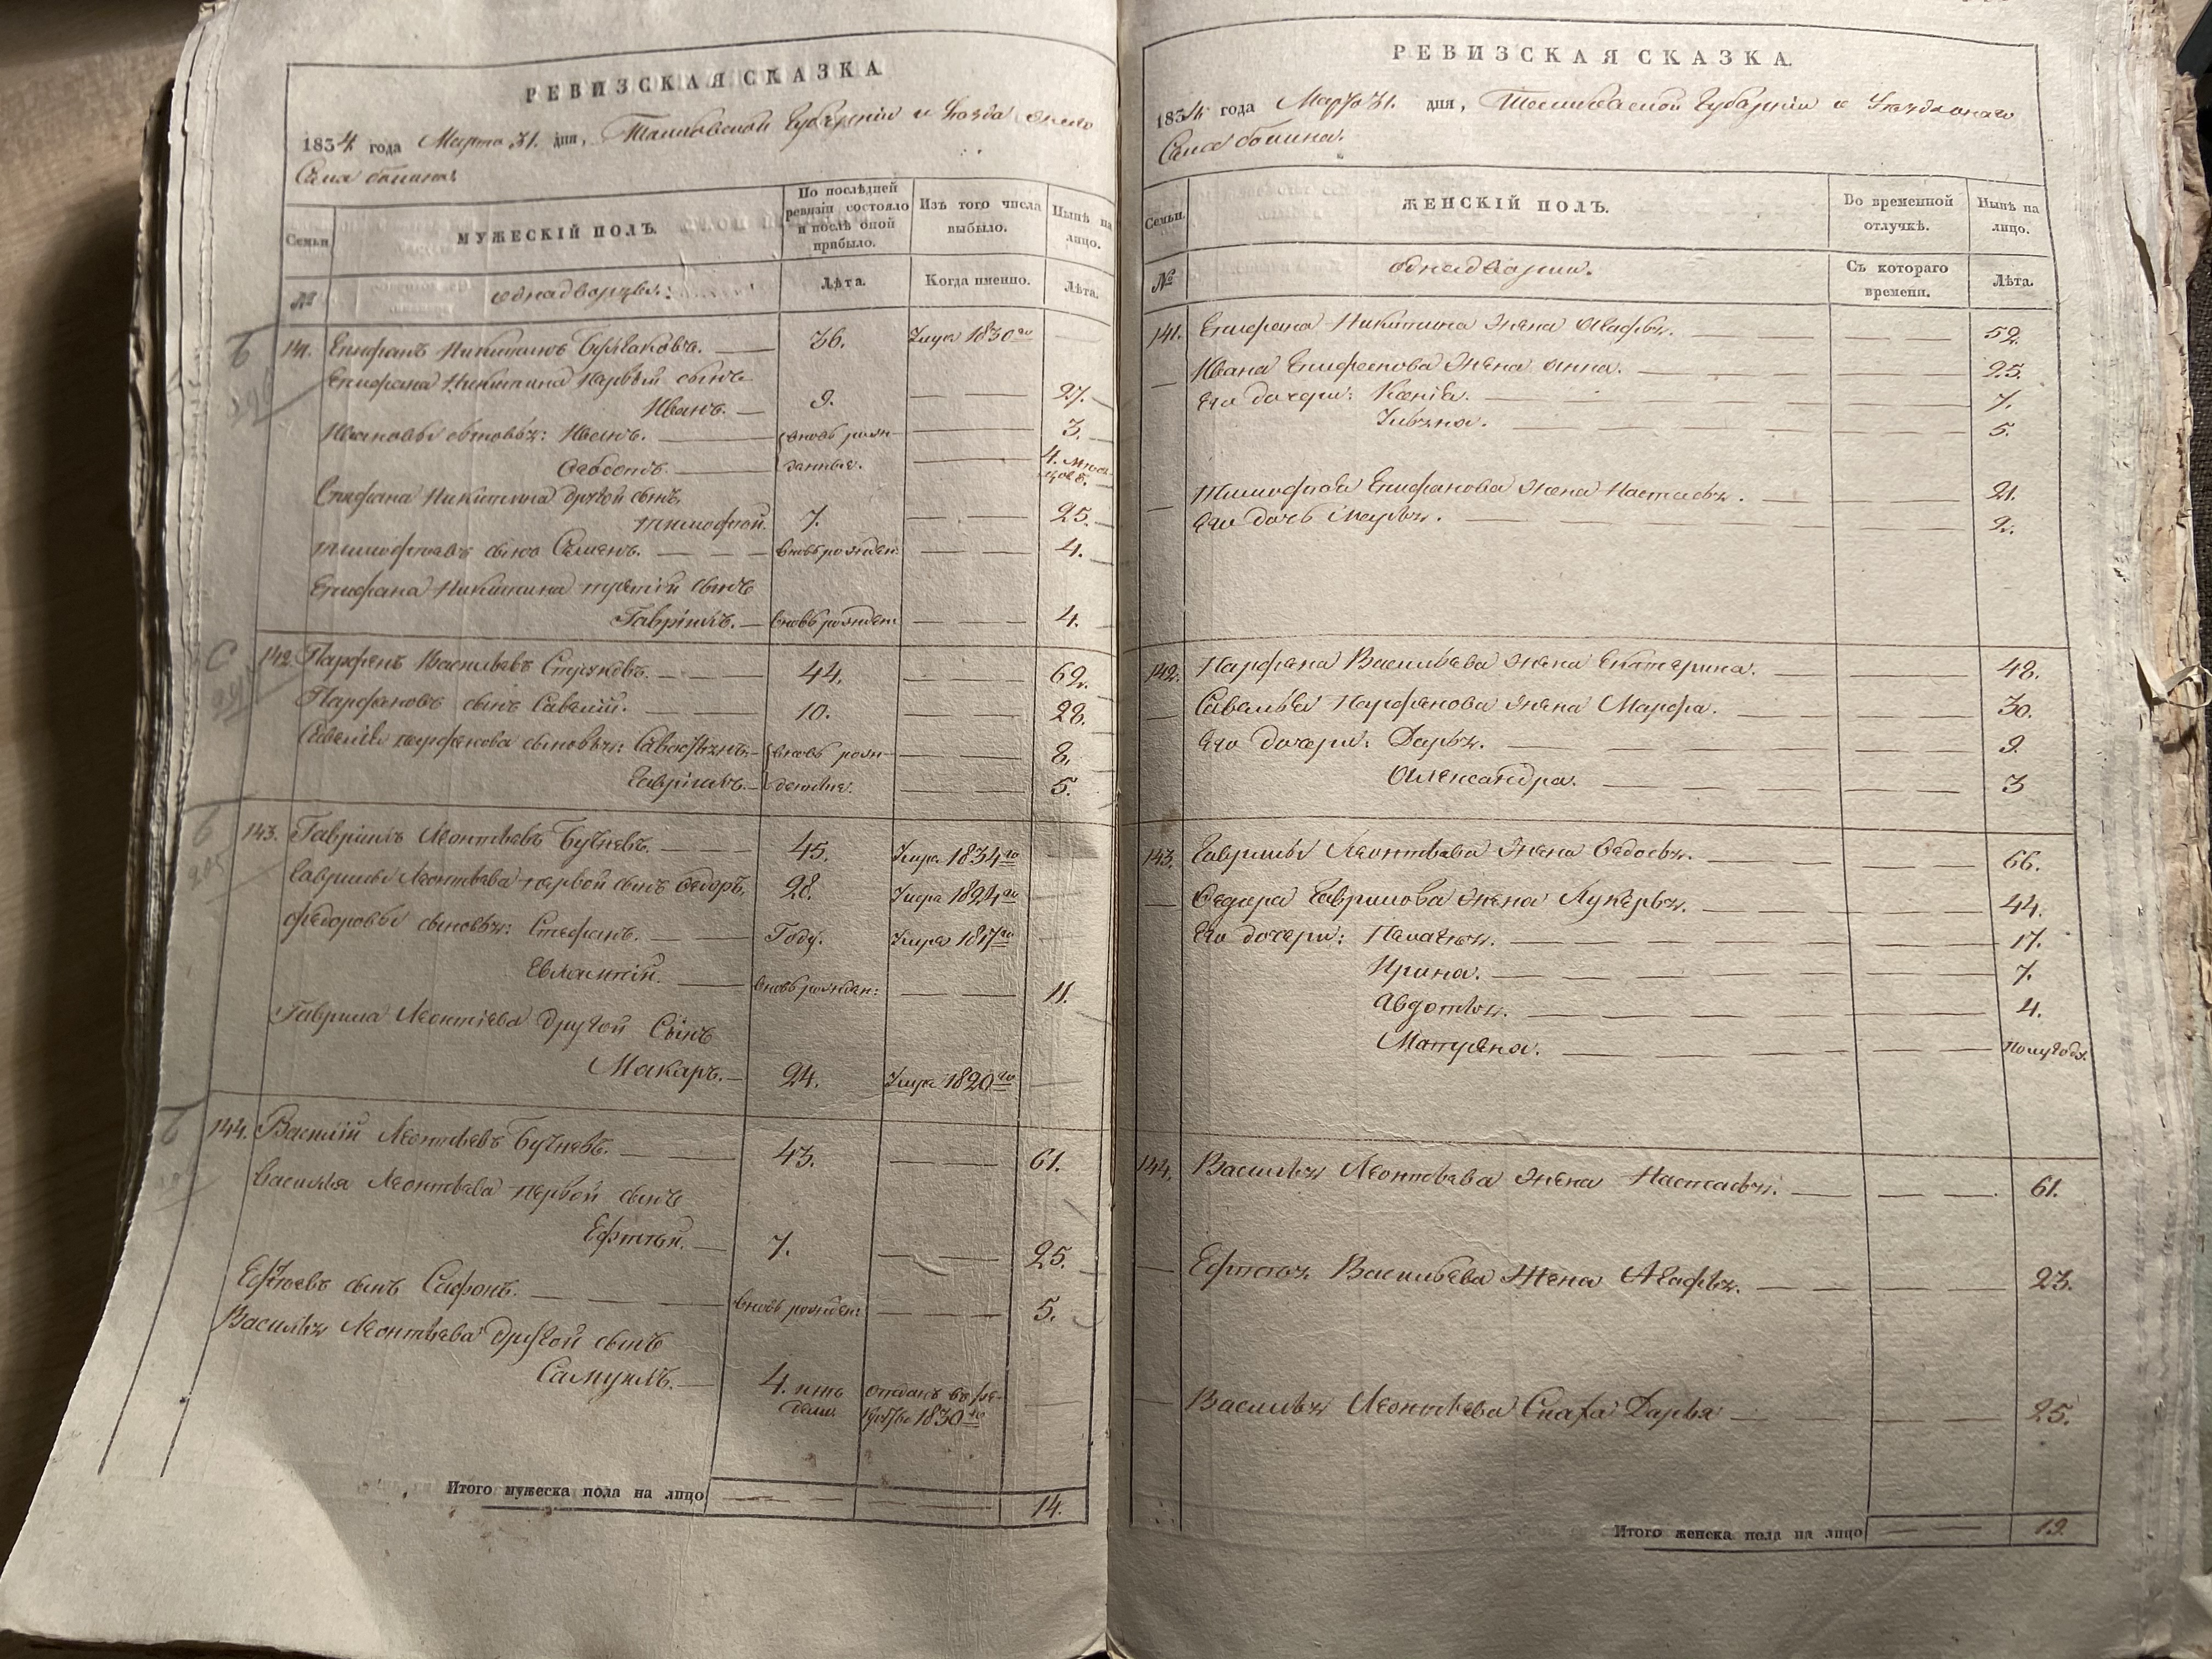 РЕВИЗСКАЯ СКАЗКА.
1834 года Марта 31. дня, Тамбовской Губерніи и Уезда
Села
Семьи
МУЖЕСКІЙ ПОЛЪ.
По послѣдней ревизіи состояло и послѣ оной прибыло.
Изъ того числа выбыло.
Нынѣ на лицо.
№
однадворцы:
Лѣта.
Когда именно.
Лѣта.
141. Епифанъ Никитинъ 36. Умре 1830го
Епифана Никитина первый сынъ
Иванъ. 9. 27.
Ивановы сыновья: Иванъ. вновь рож- 3.
денные. 4. меся-
цов.
Епифана Никитина другой сынъ
Тимофей. 7. 25.
Тимофеевъ сынъ Семенъ. вновь рожден: 4.
Епифана Никитина третій сынъ
Гаврійлъ. вновь рожден 4.
142. Парфенъ Васильевъ 44. 62.
Парфеновъ сынъ Савелій. 10. 28.
Савелія Парфенова сыновья: Савостьянъ. вновь рож- 8.
Гаврійлъ. денные. 5.
143. Гаврійлъ Леонтьевъ 45. Умре 1834го
Гаврилы Леонтьева первой сынъ Федоръ. 28. Умре 1824го
Федоровы сыновья: Стефанъ. Году. Умре 1817го
Евлампій. вновь рожден: 11.
Гаврила Леонтіева другой Сынъ
Макаръ. 24. Умре 1820го
144. Василій Леонтьевъ 43. 61.
Василья Леонтьева первой сынъ
7. 25.
сынъ Сафонъ. вновь рожден: 5.
Василья Леонтьева другой сынъ
Самуилъ. 4. не- отданъ въ ре-
дели. круты 1830го
Итого мужеска пола на лицо 14.
РЕВИЗСКАЯ СКАЗКА.
1834 года Марта 31. дня, Тамбовской Губерніи и
Села
Семьи.
ЖЕНСКІЙ ПОЛЪ.
Во временной отлучкѣ.
Нынѣ на лицо.
№
Съ котораго времени.
Лѣта.
141. Епифана Никитина жена Агафья. 52.
Ивана Епифанова жена Анна. 25.
Его дочери: 7.
Ульяна. 5.
Тимофея Епифанова жена Настасья. 21.
Его дочь Марья. 2.
142. Парфена Васильева жена Екатерина. 48.
Савелья Парфенова жена Марфа. 30.
Его дочери: Дарья. 9.
Александра. 3
143. Гаврилы Леонтьева жена Федосья. 66.
Федора Гаврилова жена Лукерья. 44.
Его дочери: Пелагея. 17.
Ирина. 7.
Авдотья. 4.
Матрена. полугода.
144. Василья Леонтьева жена Настасья. 61.
Васильева Жена Агафья. 23.
Василья Леонтьева Сноха Дарья 25.
Итого женска пола на лицо 19.